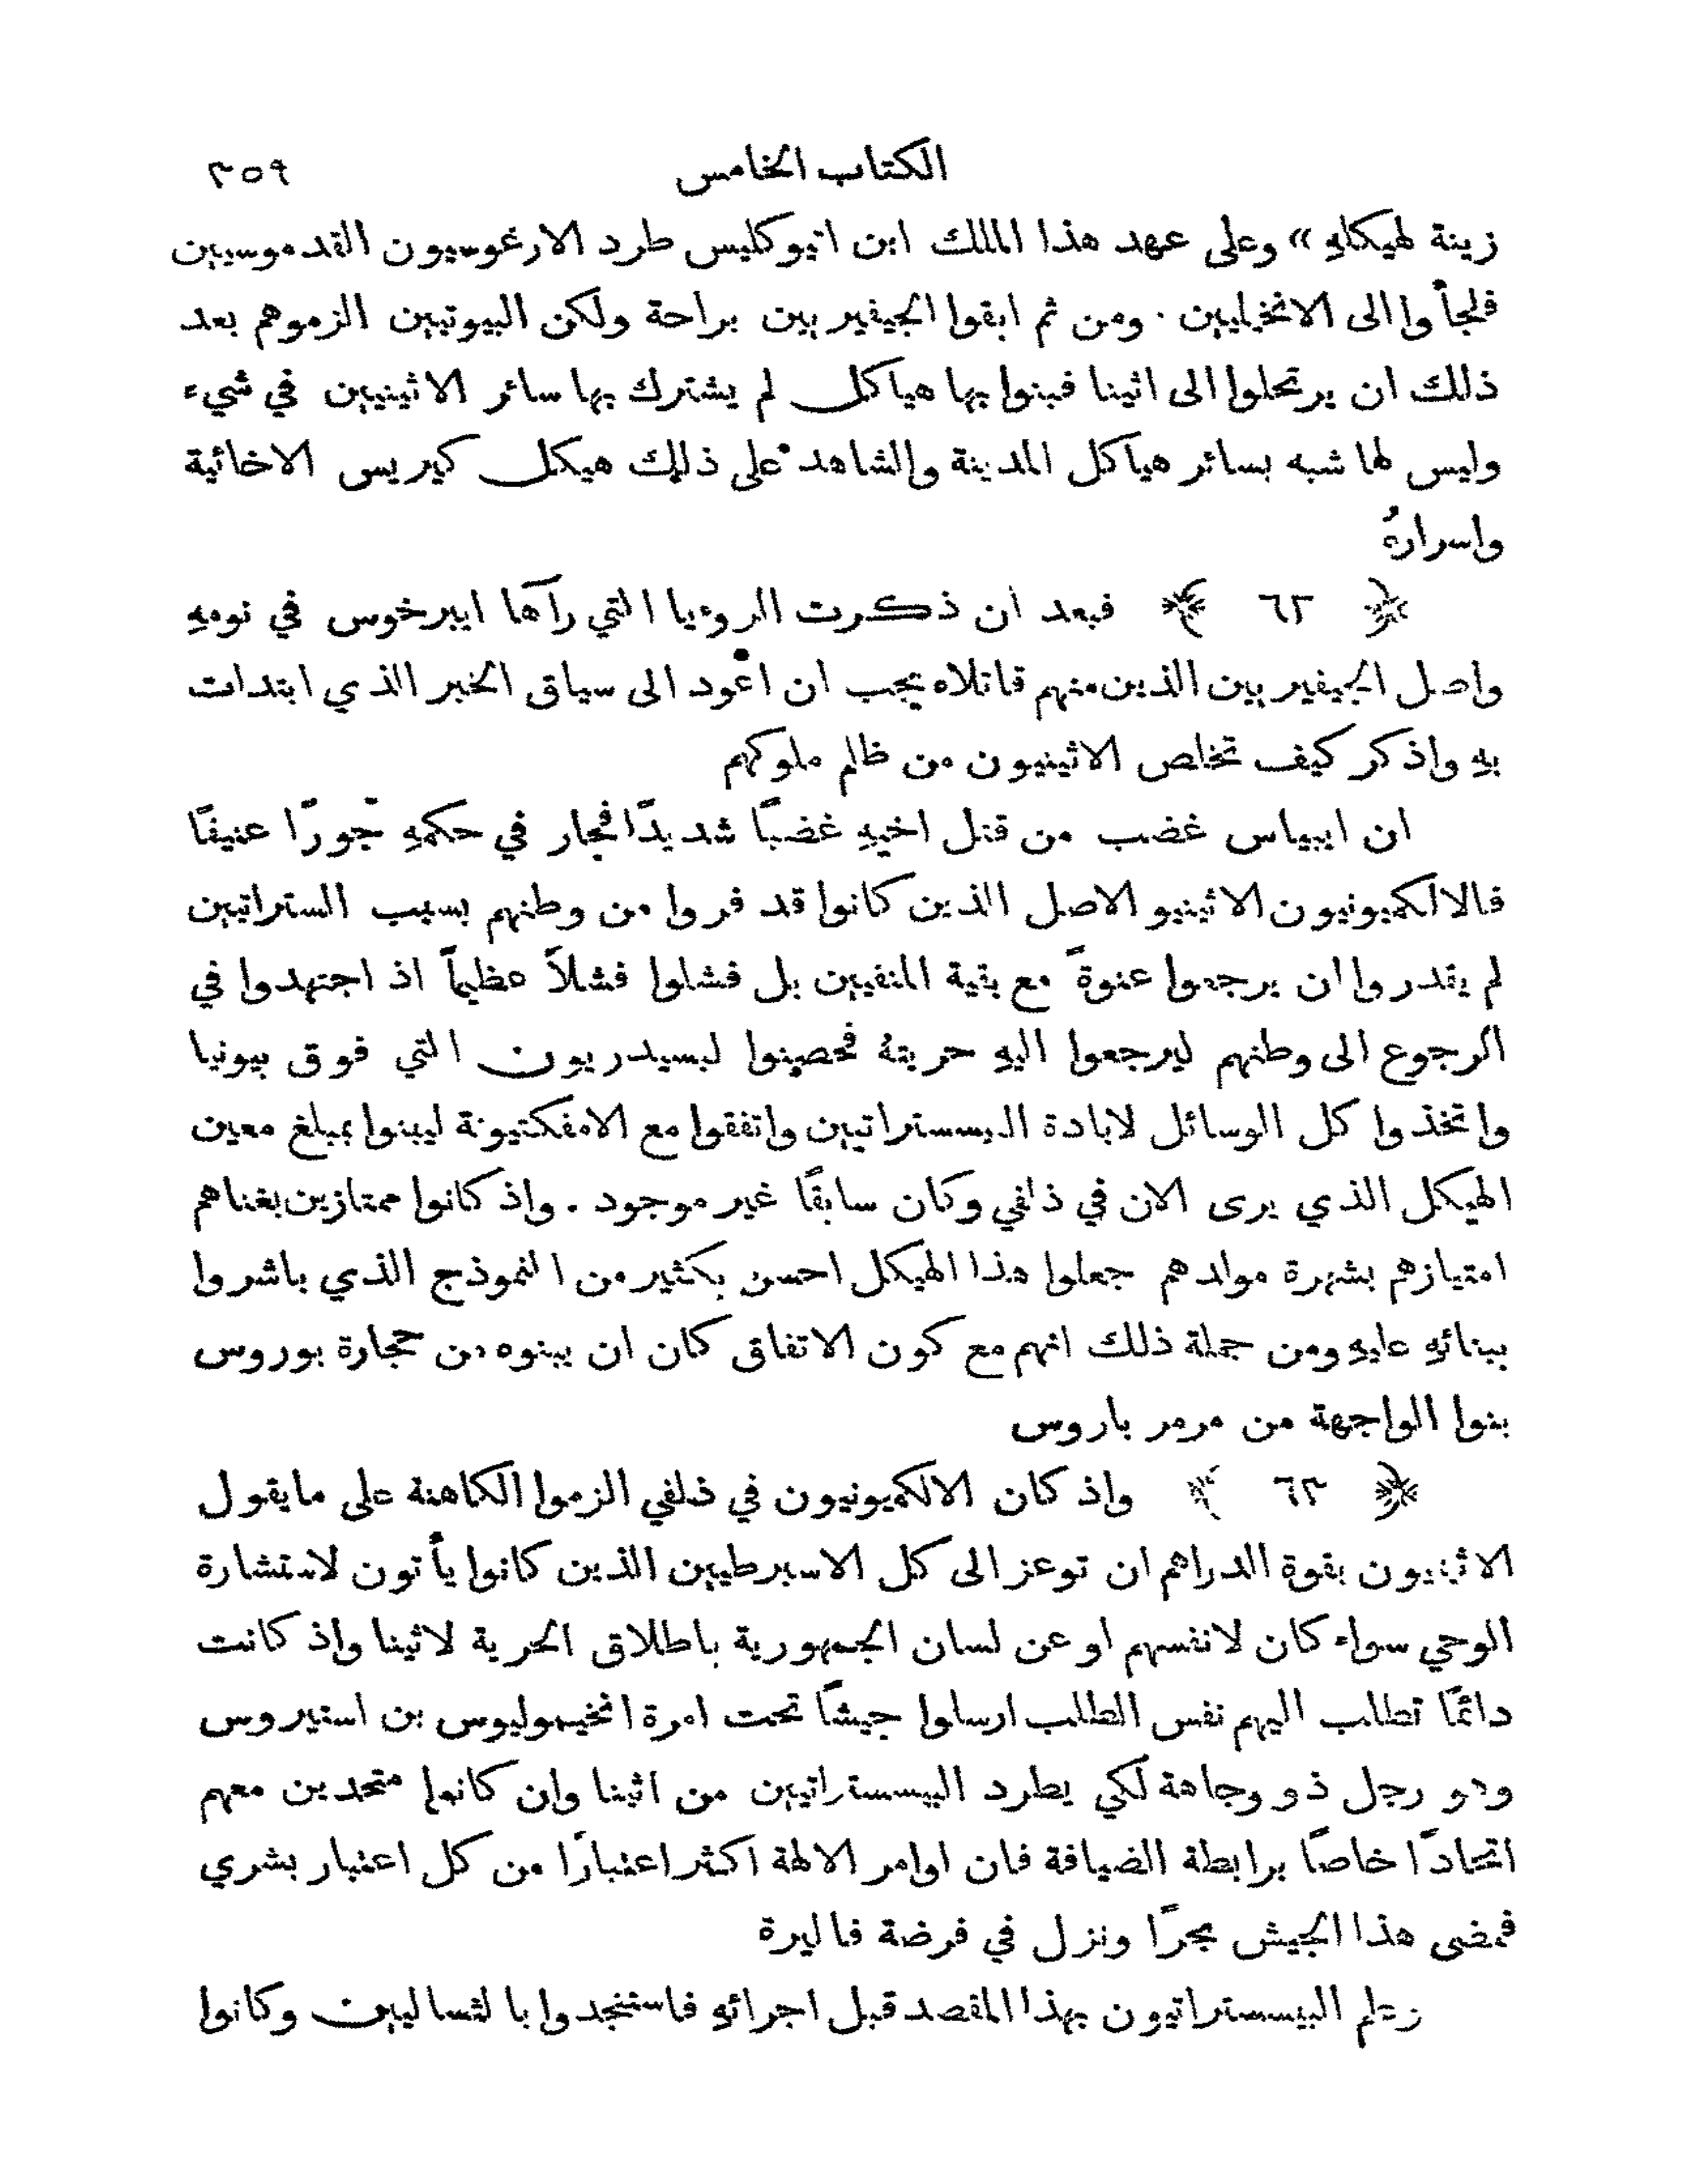 الكتاب الخامس ٣٥٩
زينة لهيكلهِ » وعلى عهد هذا الملك ابن اتيوكليس طرد الارغوسيون القدموسيين
فلجأوا الى الانخيليين . ومن ثم ابقوا الجيفيريين براحة ولكن البيوتيين الزموهم بعد
ذلك ان يرتحلوا الى اثينا فبنوا بها هياكل لم يشترك بها سائر الاثينيين في شيء
وليس لها شبه بسائر هياكل المدينة والشاهد على ذلك هيكل كيريس الاخائية
واسرارهُ
﴿ ٦٢ ﴾ فبعد ان ذكرت الروءيا التي رآها ايبرخوس في نومهِ
واصل الجيفيريين الذين منهم قاتلاه يجب ان اعود الى سياق الخبر الذي ابتدات
بهِ واذكر كيف تخلص الاثينيون من ظلم ملوكهم
ان ايبياس غضب من قتل اخيهِ غضبًا شديدًا فجار في حكمهِ جورًا عنيفًا
فالالكميونيون الاثينيو الاصل الذين كانوا قد فروا من وطنهم بسبب الستراتيين
لم يقدروا ان يرجعوا عنوةً مع بقية المنفيين بل فشلوا فشلاً عظيماً اذ اجتهدوا في
الرجوع الى وطنهم ليرجعوا اليهِ حريتهُ فحصنوا ليبسيدريون التي فوق بيونيا
واتخذوا كل الوسائل لابادة البيسستراتيين واتفقوا مع الامفكتيونة ليبنوا بمبلغ معين
الهيكل الذي يرى الان في ذلفي وكان سابقًا غير موجود . واذ كانوا ممتازين بغناهم
امتيازهم بشهرة مولدهم جعلوا هذا الهيكل احسن بكثير من النموذج الذي باشروا
ببنائهِ عليهِ ومن جملة ذلك انهم مع كون الاتفاق كان ان يبنوه من حجارة بوروس
بنوا الواجهة من مرمر باروس
﴿ ٦٣ ﴾ واذ كان الالكميونيون في ذلفي الزموا الكاهنة على ما يقول
الاثينيون بقوة الدراهم ان توعز الى كل الاسبرطيين الذين كانوا يأتون لاستشارة
الوحي سواء كان لانفسهم او عن لسان الجمهورية باطلاق الحرية لاثينا واذ كانت
دائمًا تطلب اليهم نفس الطلب ارسلوا جيشًا تحت امرة انخيموليوس بن استيروس
وهو رجل ذو وجاهة لكي يطرد البيسستراتيين من اثينا وان كانوا متحدين معهم
اتحادًا خاصًا برابطة الضيافة فان اوامر الالهة اكثر اعتبارًا من كل اعتبار بشري
فمضى هذا الجيش بحرًا ونزل في فرضة فاليرة
وعلم البيسستراتيون بهذا المقصد قبل اجرائهِ فاستنجدوا بالثساليين وكانوا